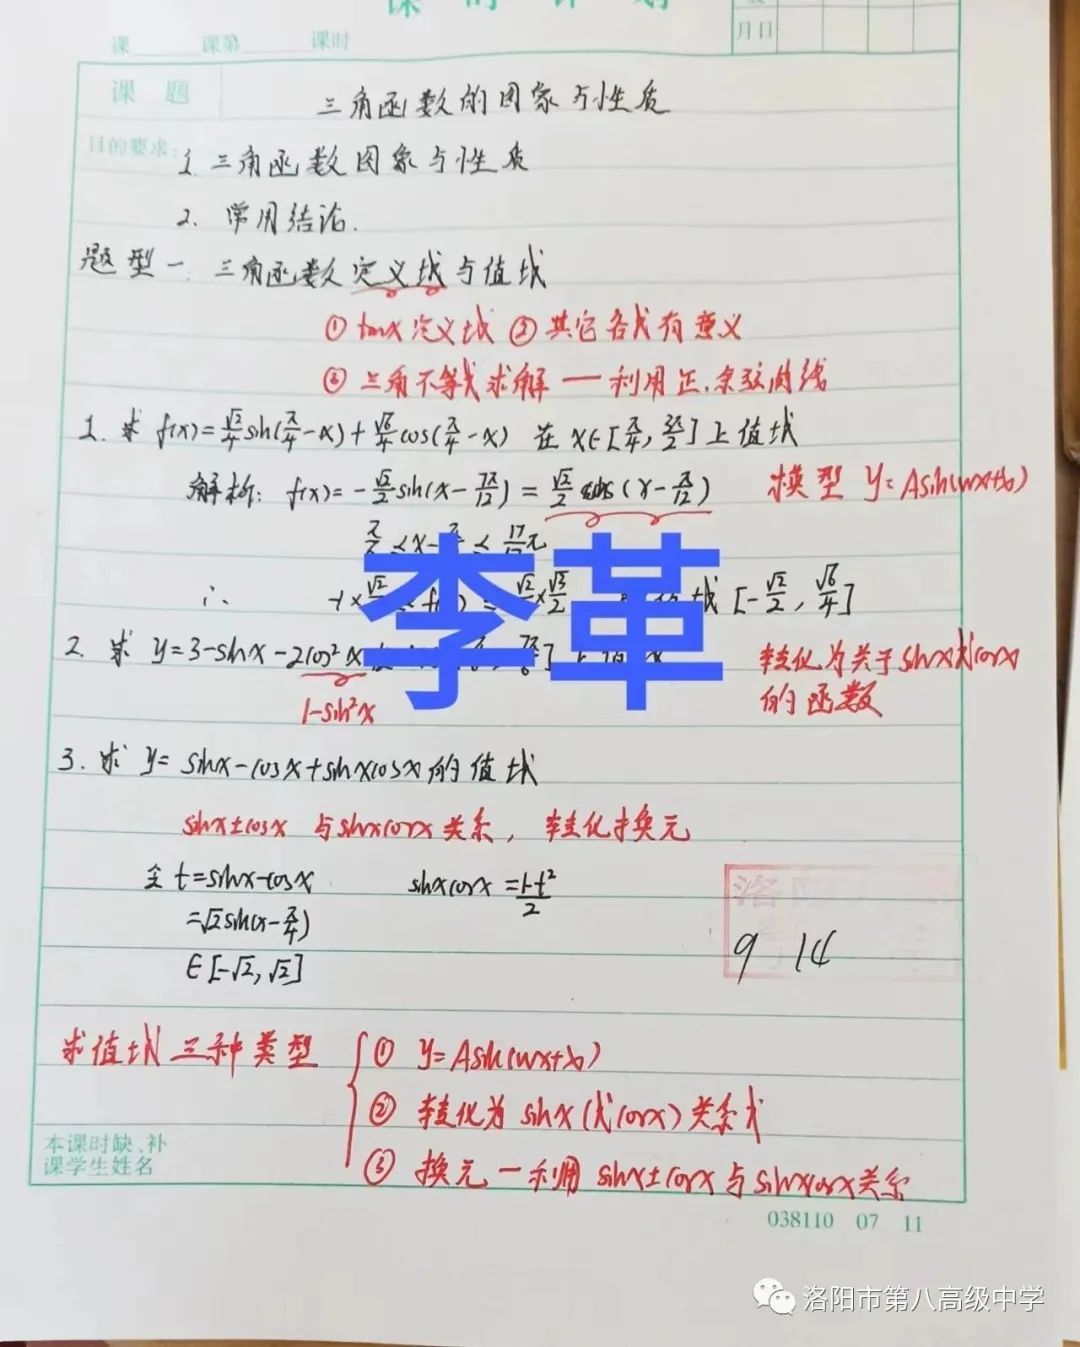 课时计划
课 课第 课时
月日
课题 三角函数的图象与性质
目的要求:
1. 三角函数图象与性质
2. 常用结论.
题型一: 三角函数定义域与值域
① tanx定义域 ② 其它各式有意义
③ 三角不等式求解 — 利用正.余弦曲线
1. 求 f(x)=√2/4 sin(π/4-x)+√6/4 cos(π/4-x) 在 x∈[π/4, 3π/2]上值域
解析: f(x)=-√2/2 sin(x-7π/12)=√2/2 cos(x-π/12) 模型 y=Asin(wx+φ)
∴ 域[-√2/2, √6/4]
李革
2. 求 y=3-sinx-2cos²x 转化为关于sinx或cosx
1-sin²x 的函数
3. 求 y=sinx-cosx+sinxcosx的值域
sinx±cosx 与sinxcosx关系, 转化才换元
令t=sinx-cosx sinxcosx=1-t²/2
=√2sin(x-π/4)
∈[-√2, √2]
9 14
求值域三种类型
① y=Asin(wx+φ)
② 转化为 sinx(或cosx)关系式
③ 换元—利用 sinx±cosx与sinxcosx关系
本课时缺、补
课学生姓名
038110 07 11
洛阳市第八高级中学